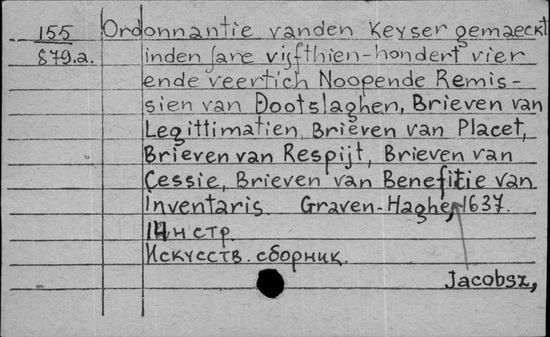 155 Ordonnantie vanden Keyser gemaeckt
879.a. inden jare vijfthien-hondert vier
ende veertich Noopende Remis-
sien van Dootslaghen, Brieven van
Legittimatien, Brieven van Placet,
Brieven van Respijt, Brieven van
Cessie, Brieven van Benefitie van
Inventaris. Graven-Haghe, 1637.
14 н стр.
Искусств. сборник.
Jacobsz,